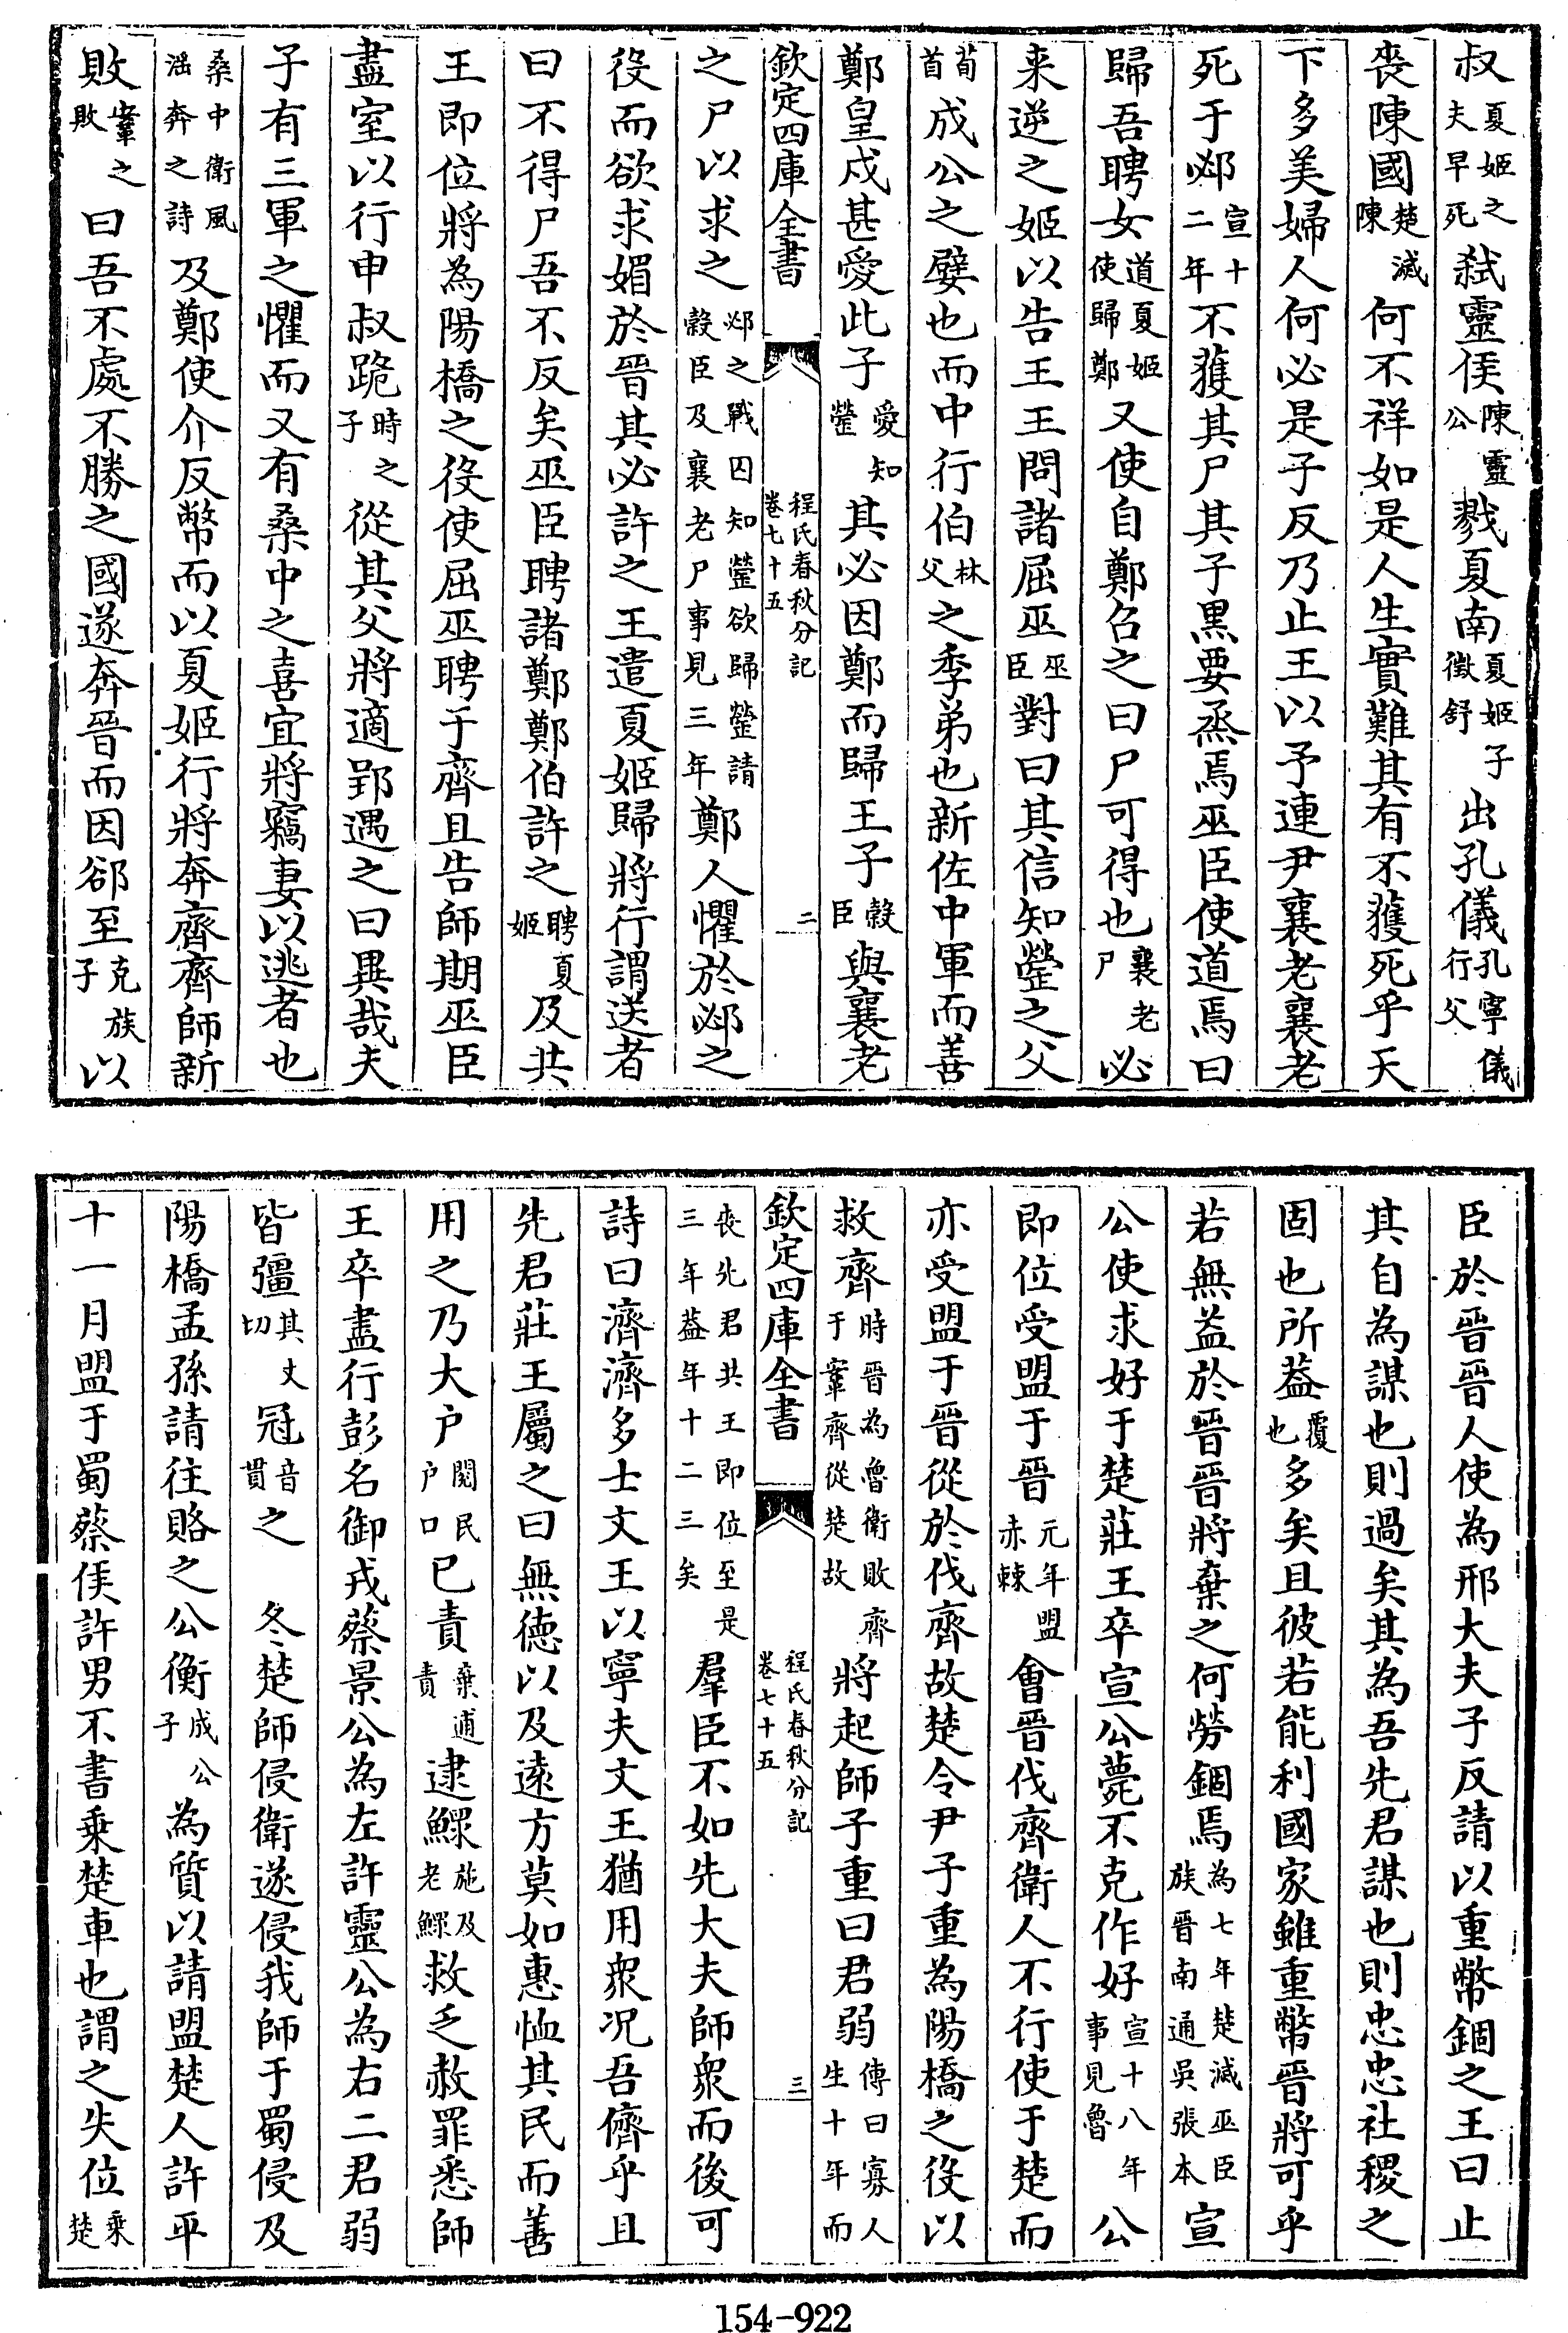 叔夏姬之夫早死弑靈侯陳靈公戮夏南夏姬子徵舒出孔儀孔寧儀行父
喪陳國楚滅陳何不祥如是人生實難其有不獲死乎天
下多美婦人何必是子反乃止王以予連尹襄老襄老
死于邲宣十二年不獲其尸其子黑要烝焉巫臣使道焉曰
歸吾聘女道夏姬使歸鄭又使自鄭召之曰尸可得也襄老尸必
来逆之姬以告王王問諸屈巫巫臣對曰其信知罃之父
荀首成公之嬖也而中行伯林父之季弟也新佐中軍而善
鄭皇戌甚愛此子愛知罃其必因鄭而歸王子榖臣與襄老
欽定四庫全書 程氏春秋分記卷七十五 二
之尸以求之邲之戰囚知罃欲歸罃請榖臣及襄老尸事見三年鄭人懼於邲之
役而欲求媚於晉其必許之王遣夏姬歸將行謂送者
曰不得尸吾不反矣巫臣聘諸鄭鄭伯許之聘夏姬及共
王即位將為陽橋之役使屈巫聘于齊且告師期巫臣
盡室以行申叔跪時之子從其父將適郢遇之曰異哉夫
子有三軍之懼而又有桑中之喜宜將竊妻以逃者也
桑中衛風淫奔之詩及鄭使介反幣而以夏姬行將奔齊齊師新
敗鞌之敗曰吾不處不勝之國遂奔晉而因郤至克族子以
臣於晉晉人使為邢大夫子反請以重幣錮之王曰止
其自為謀也則過矣其為吾先君謀也則忠忠社稷之
固也所葢覆也多矣且彼若能利國家雖重幣晉將可乎
若無益於晉晉將棄之何勞錮焉為七年楚滅巫臣族晉南通吳張本宣
公使求好于楚莊王卒宣公薨不克作好宣十八年事見魯公
即位受盟于晉元年盟赤棘會晉伐齊衛人不行使于楚而
亦受盟于晉從於伐齊故楚令尹子重為陽橋之役以
救齊時晉為魯衛敗齊于鞌齊從楚故將起師子重曰君弱傳曰寡人生十年而
欽定四庫全書 程氏春秋分記卷七十五 三
喪先君共王即位至是三年葢年十二三矣羣臣不如先大夫師衆而後可
詩曰濟濟多士文王以寧夫文王猶用衆况吾儕乎且
先君莊王屬之曰無徳以及逺方莫如惠恤其民而善
用之乃大户閱民户口已責棄逋責逮鰥施及老鰥救乏赦罪悉師
王卒盡行彭名御戎蔡景公為左許靈公為右二君弱
皆彊其丈切冠音貫之 冬楚師侵衛遂侵我師于蜀侵及
陽橋孟孫請往賂之公衡成公子為質以請盟楚人許平
十一月盟于蜀蔡侯許男不書乗楚車也謂之失位乗楚
154-922